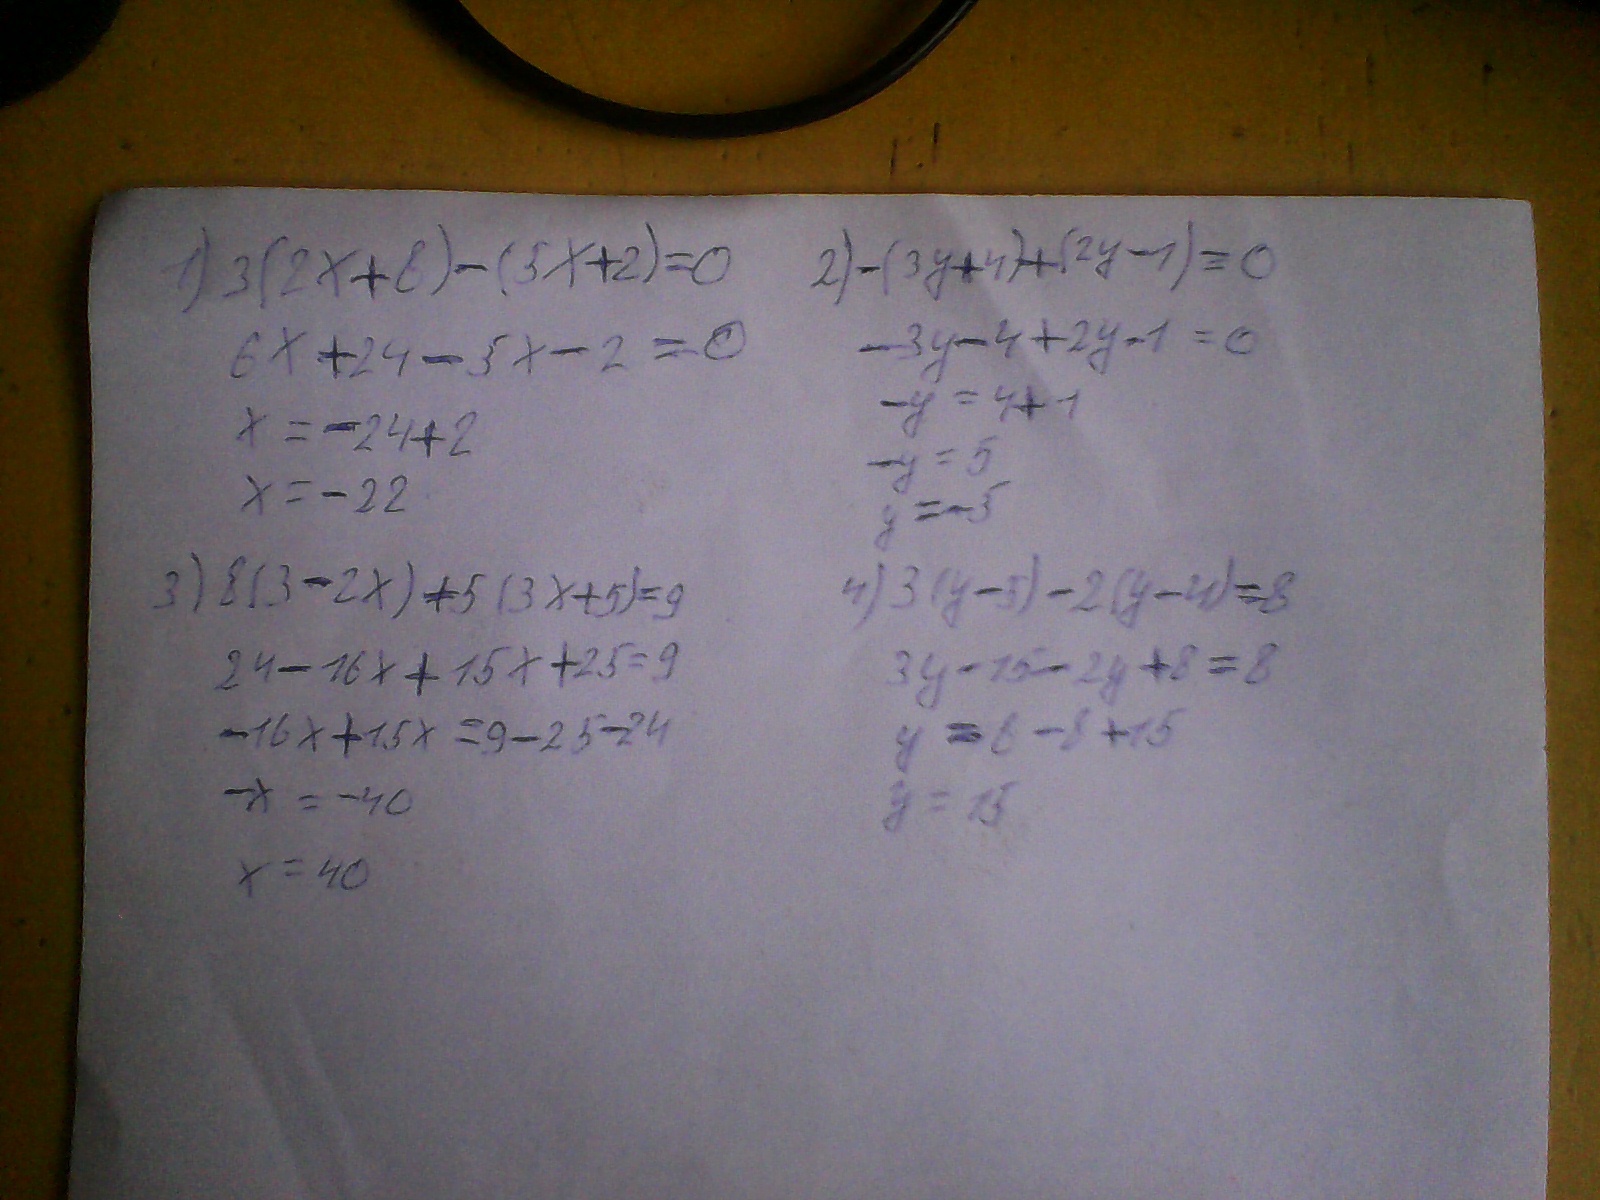 1) 3(2x+8)-(5x+2)=0
6x+24-5x-2=0
x=-24+2
x=-22
2) -(3y+4)+(2y-1)=0
-3y-4+2y-1=0
-y=4+1
-y=5
y=-5
3) 8(3-2x)+5(3x+5)=9
24-16x+15x+25=9
-16x+15x=9-25-24
-x=-40
x=40
4) 3(y-5)-2(y-4)=8
3y-15-2y+8=8
y=8-8+15
y=15